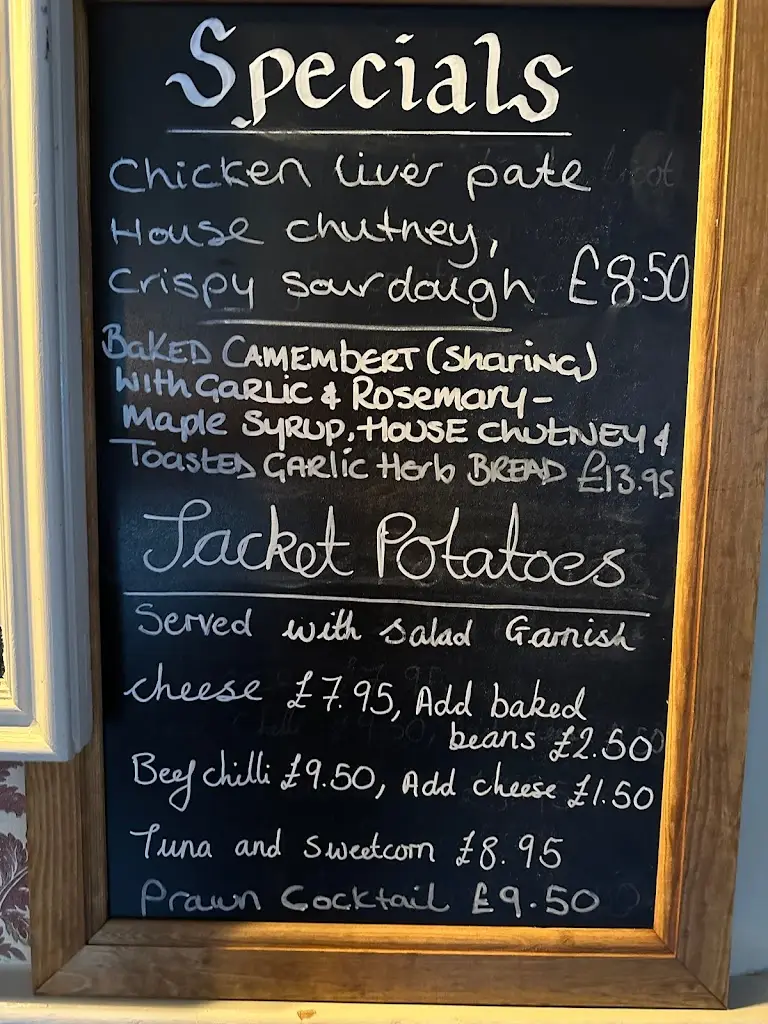 Specials
Chicken liver pate
House chutney,
Crispy sourdough £8.50
BAKED CAMEMBERT (SHARING)
WITH GARLIC & ROSEMARY-
MAPLE SYRUP, HOUSE CHUTNEY &
TOASTED GARLIC HERB BREAD £13.95
Jacket Potatoes
Served with salad Garnish
cheese £7.95, Add baked
beans £2.50
Beef chilli £9.50, Add cheese £1.50
Tuna and Sweetcorn £8.95
Prawn Cocktail £9.50